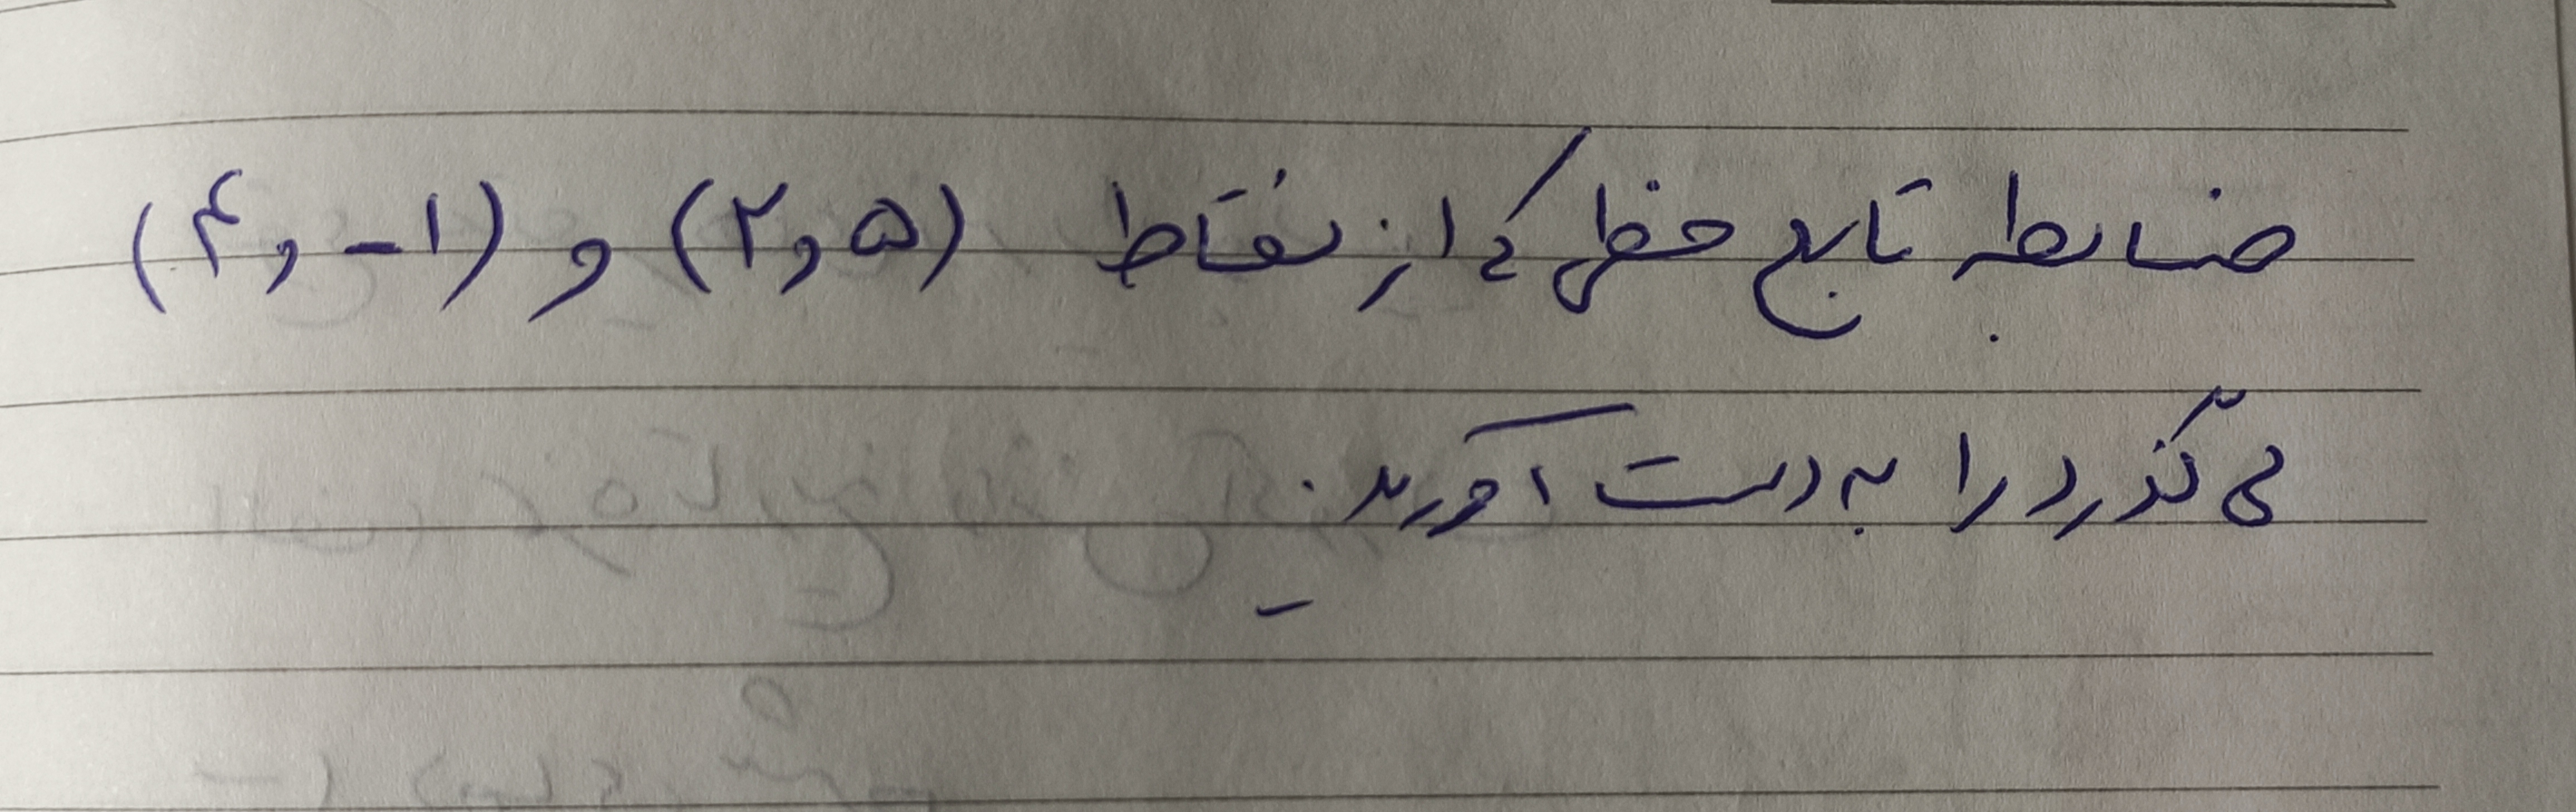 ضابطه تابع خطی که از نقاط (۲,۵) و (۴,-۱)
می‌گذرد را به دست آورید.